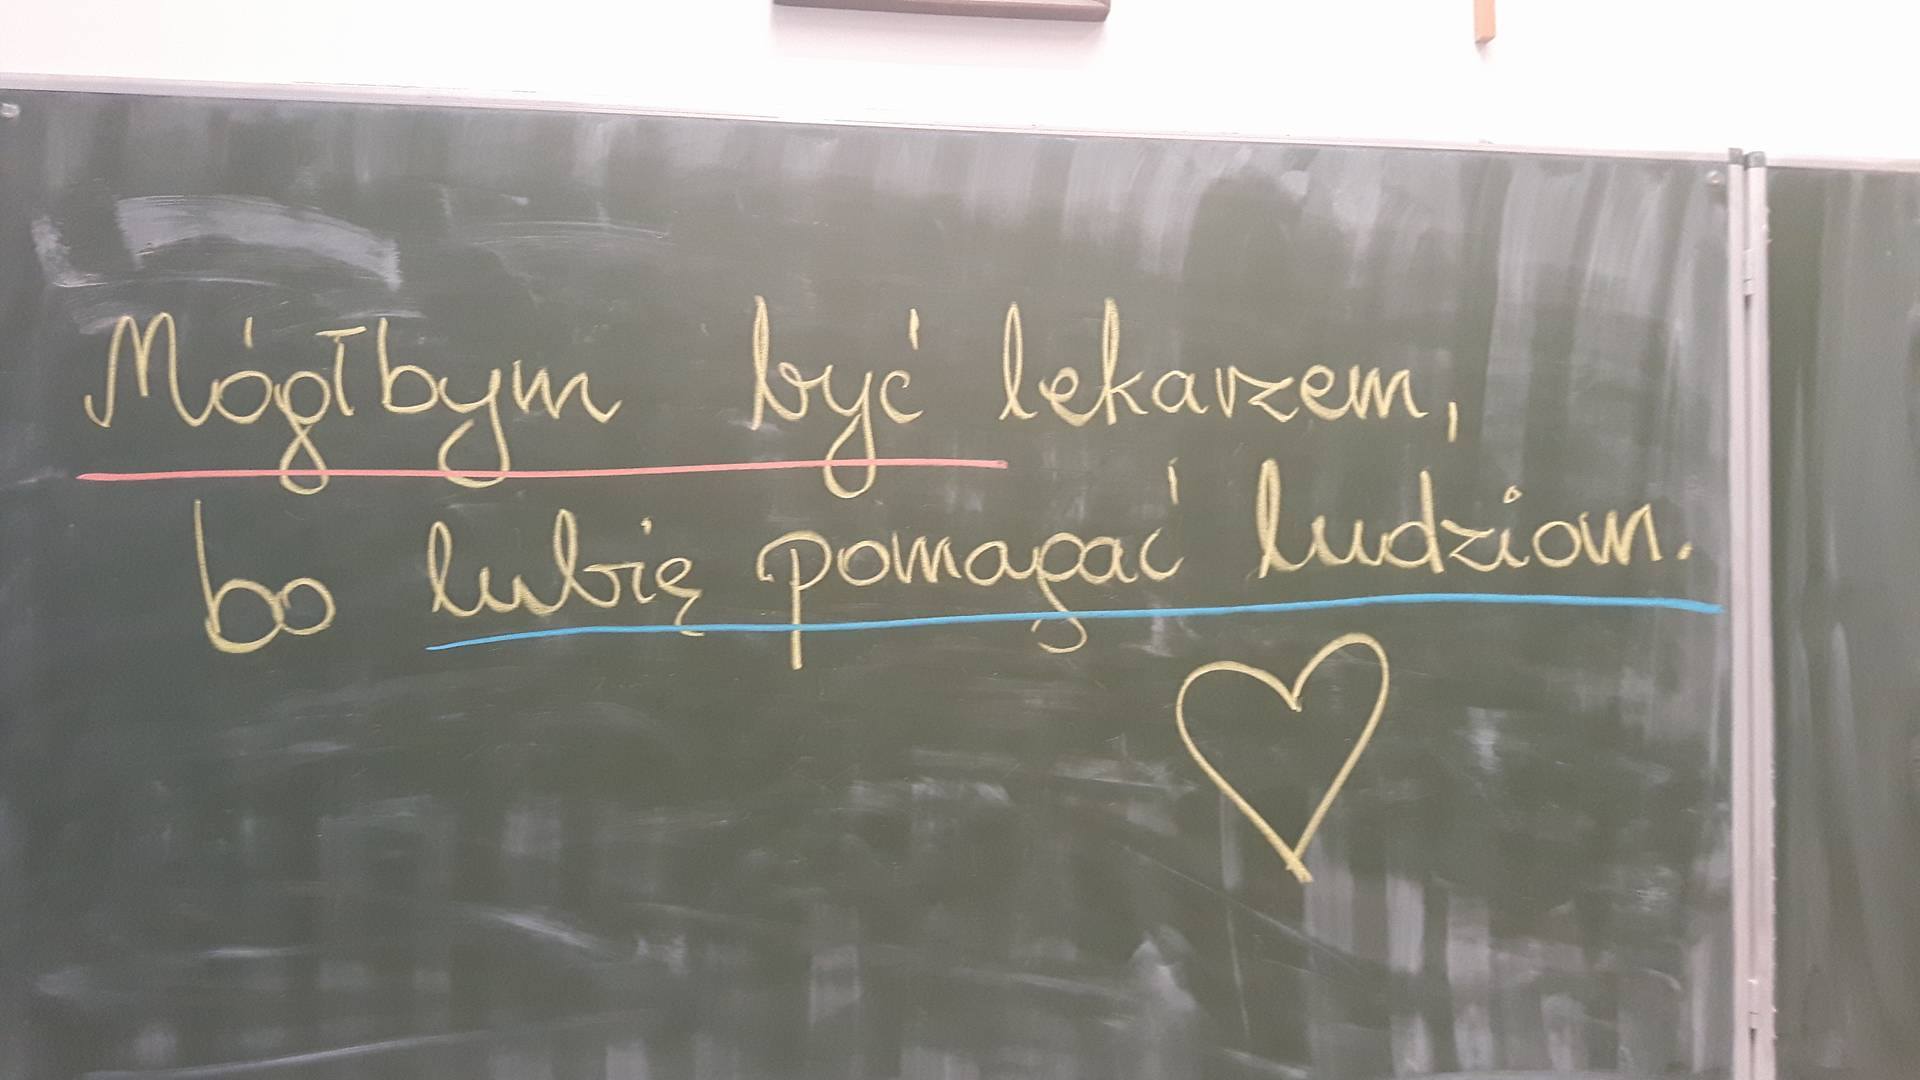 Mógłbym być lekarzem,
bo lubię pomagać ludziom.